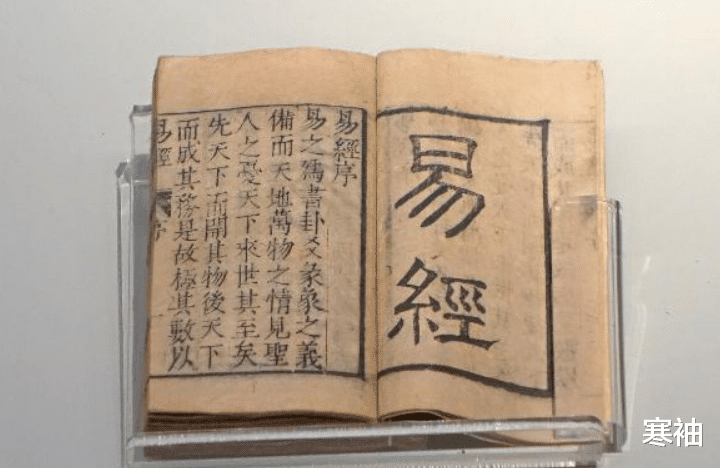 易經
易經序
易之爲書卦爻彖象之義
備而天地萬物之情見聖
人之憂天下來世其至矣
先天下而開其物後天下
而成其務是故極其數以
易經 序
寒袖